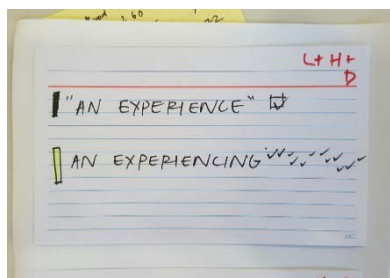 L+ H+
D
"AN EXPERIENCE"
AN EXPERIENCING